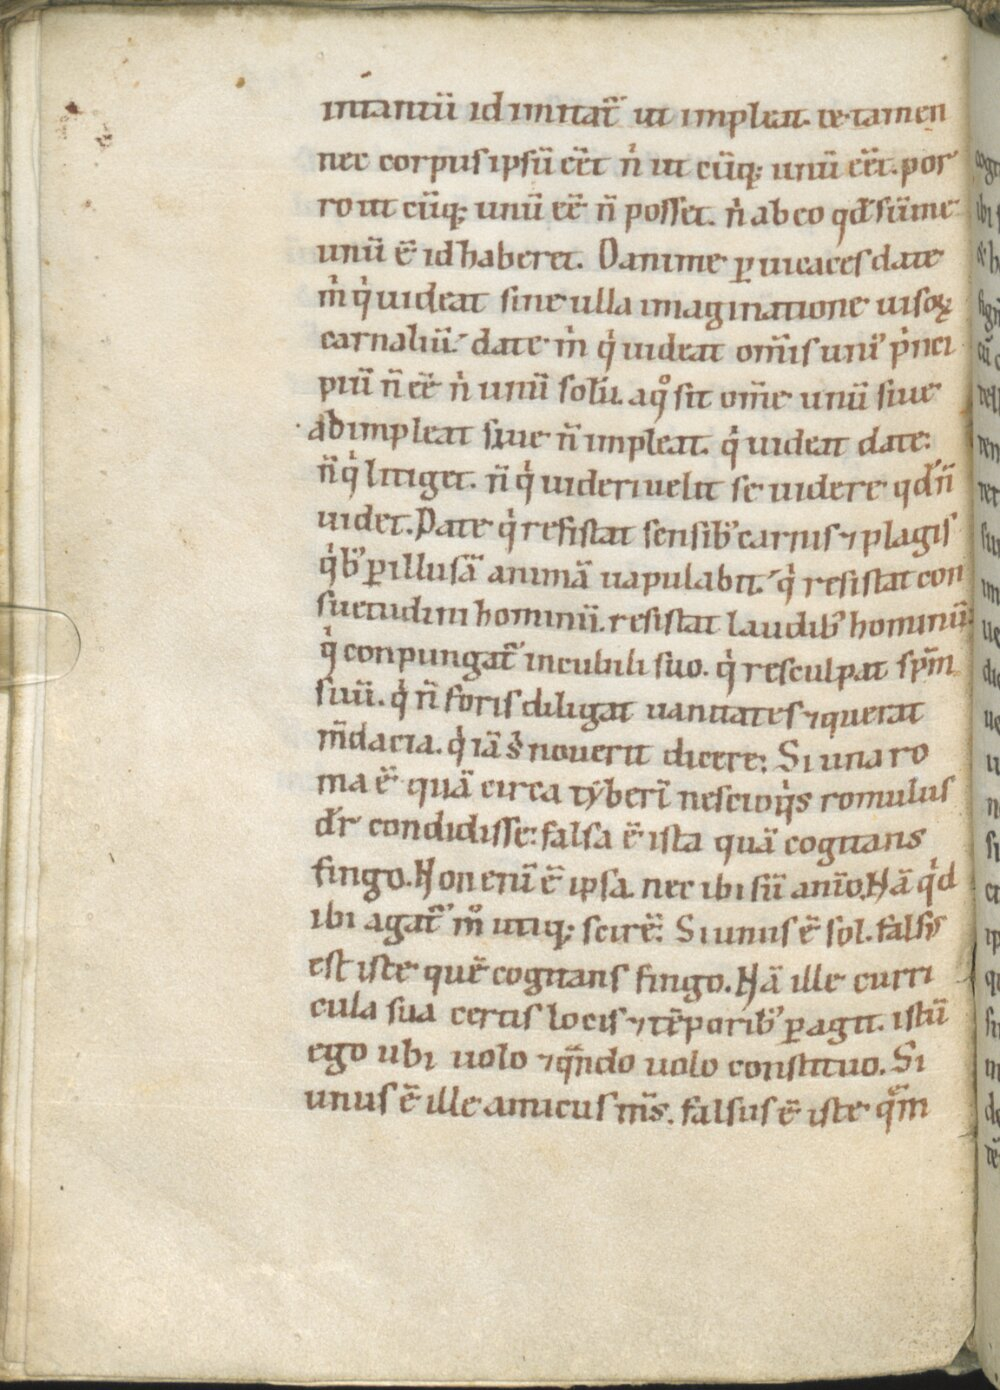 intantū id imitat᷑ ut impleat. te tamen
nec corpus ipsū eēt n̓ ut cūq; unū eēt. por
ro ut cūq; unū eē n̄ posset. n̓ ab eo qđ sūme
unū ē id haberet. Oanime ꝑuicaces date
m̓ q̓ uideat sine ulla imaginatione uisoꝝ
carnaliū. date m̓ q̓ uideat om̄is uni᾿ p̓nci
piū n̄ eē n̓ unū solū. a qͦ sit om̄e unū siue
adimpleat siue n̄ impleat. q̓ uideat date:
n̄ q̓ litiget. n̄ q̓ uideri uelit se uidere qđ n̄
uidet. Date q̓ resistat sensib᾿ carnis ⁊ plagis
q̓b᾿ ꝑ illus ā animā uapulabit. q̓ resistat con
suetudini hominū. resistat laudib᾿ hominū.
q̓ conpungat᷑ in cubili suo. q̓ resculpat sp̄m
suū. q̓ n̄ foris diligat uanitates ⁊ querat
m̄dacia. q̓ iā s̓ nouerit dicere: Si una ro
ma ē quā circa tẏberī nescio q̓s romulus
dr̄ condidisse: falsa ē ista quā cogitans
fingo. Non enī ē ipsa. nec ibi sū anīo. Nā q̓d
ibi agat᷑ mͦ utiq; scirē. Si unus ē sol. falsus
est iste quē cogitans fingo. Nā ille curri
cula sua certis locis ⁊ tēporib᾿ ꝑagit. istū
ego ubi uolo ⁊ qn̄do uolo constituo. Si
unus ē ille amicus m̄s. falsus ē iste qm̄